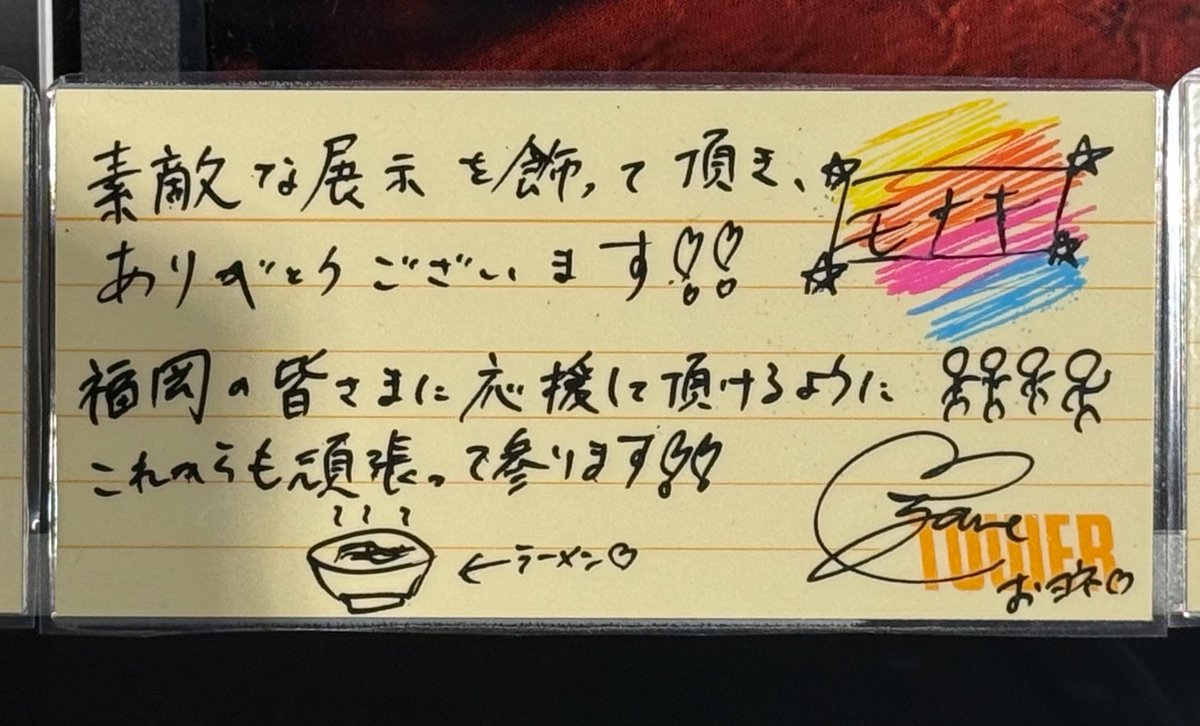 素敵な展示を飾って頂き、
モナキ
ありがとうございます!!
福岡の皆さまに応援して頂けるように
これからも頑張って参ります!!
←ラーメン♡
TOWER
おヨネ♡